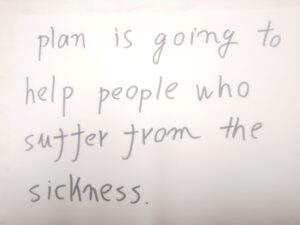 plan is going to
help people who
suffer from the
sickness.